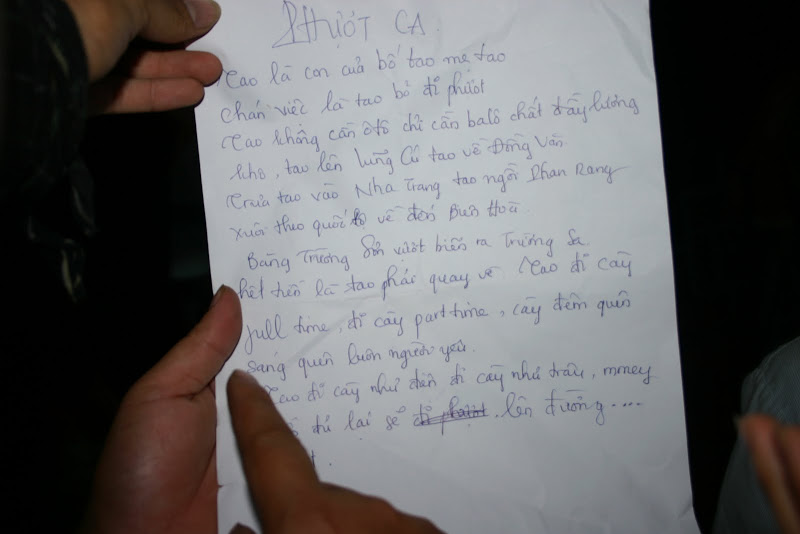 PHƯỢT CA
Tao là con của bố tao mẹ tao
Chán việc là tao bỏ đi phượt
Tao không cần ôtô chỉ cần balô chất đầy lương
khô, tao lên Lũng Cú tao về Đồng Văn
Trưa tao vào Nha Trang tao ngồi Phan Rang
Xuôi theo quốc lộ về đến Biên Hoà
Băng Trường Sơn vượt biển ra Trường Sa
hết tiền là tao phải quay về Tao đi cày
full time, đi cày part time, cày đêm quên
sáng quên luôn người yêu
Tao đi cày như điên đi cày như trâu, money
đủ lại sẽ đi phượt lên đường....